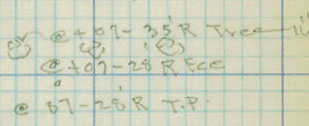 @ +07 - 35' R Tree - 16"
@ +07 - 28 R Fce
@ 87 - 28' R T.P.